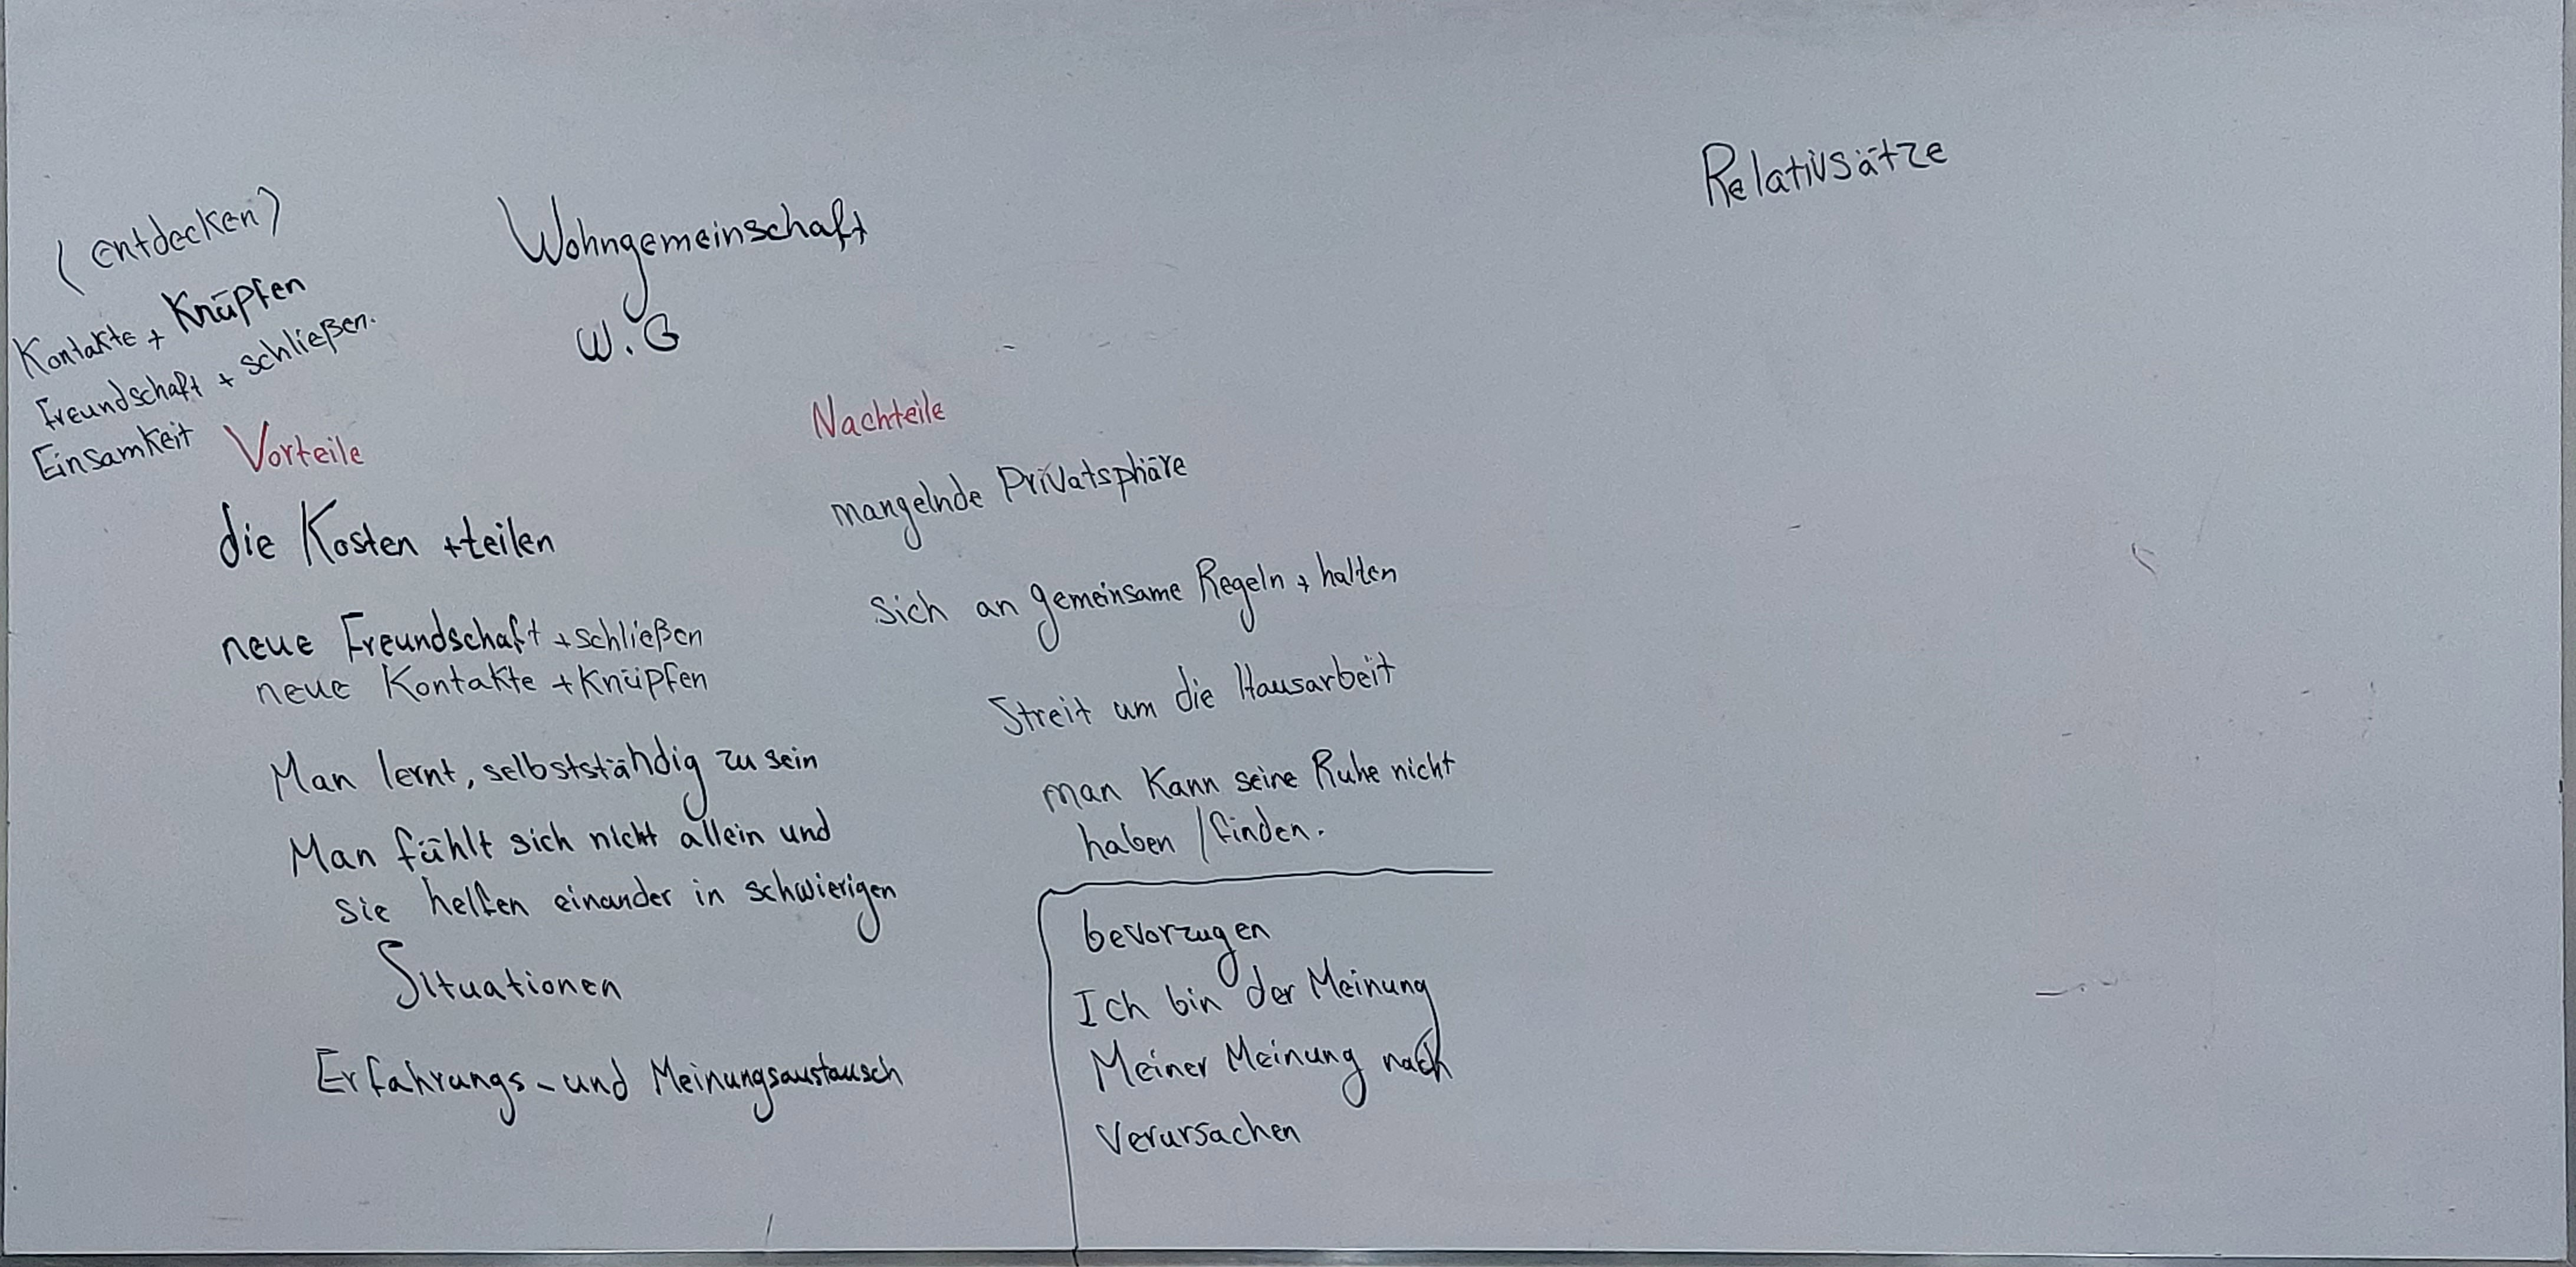 (entdecken)
Kontakte + Knüpfen
Freundschaft + schließen.
Einsamkeit
Wohngemeinschaft
W.G
Vorteile
die Kosten + teilen
neue Freundschaft + schließen
neue Kontakte + Knüpfen
Man lernt, selbstständig zu sein
Man fühlt sich nicht allein und
sie helfen einander in schwierigen
Situationen
Erfahrungs- und Meinungsaustausch
Nachteile
mangelnde Privatsphäre
sich an gemeinsame Regeln + halten
Streit um die Hausarbeit
man Kann seine Ruhe nicht
haben / finden.
bevorzugen
Ich bin der Meinung
Meiner Meinung nach
Verursachen
Relativsätze